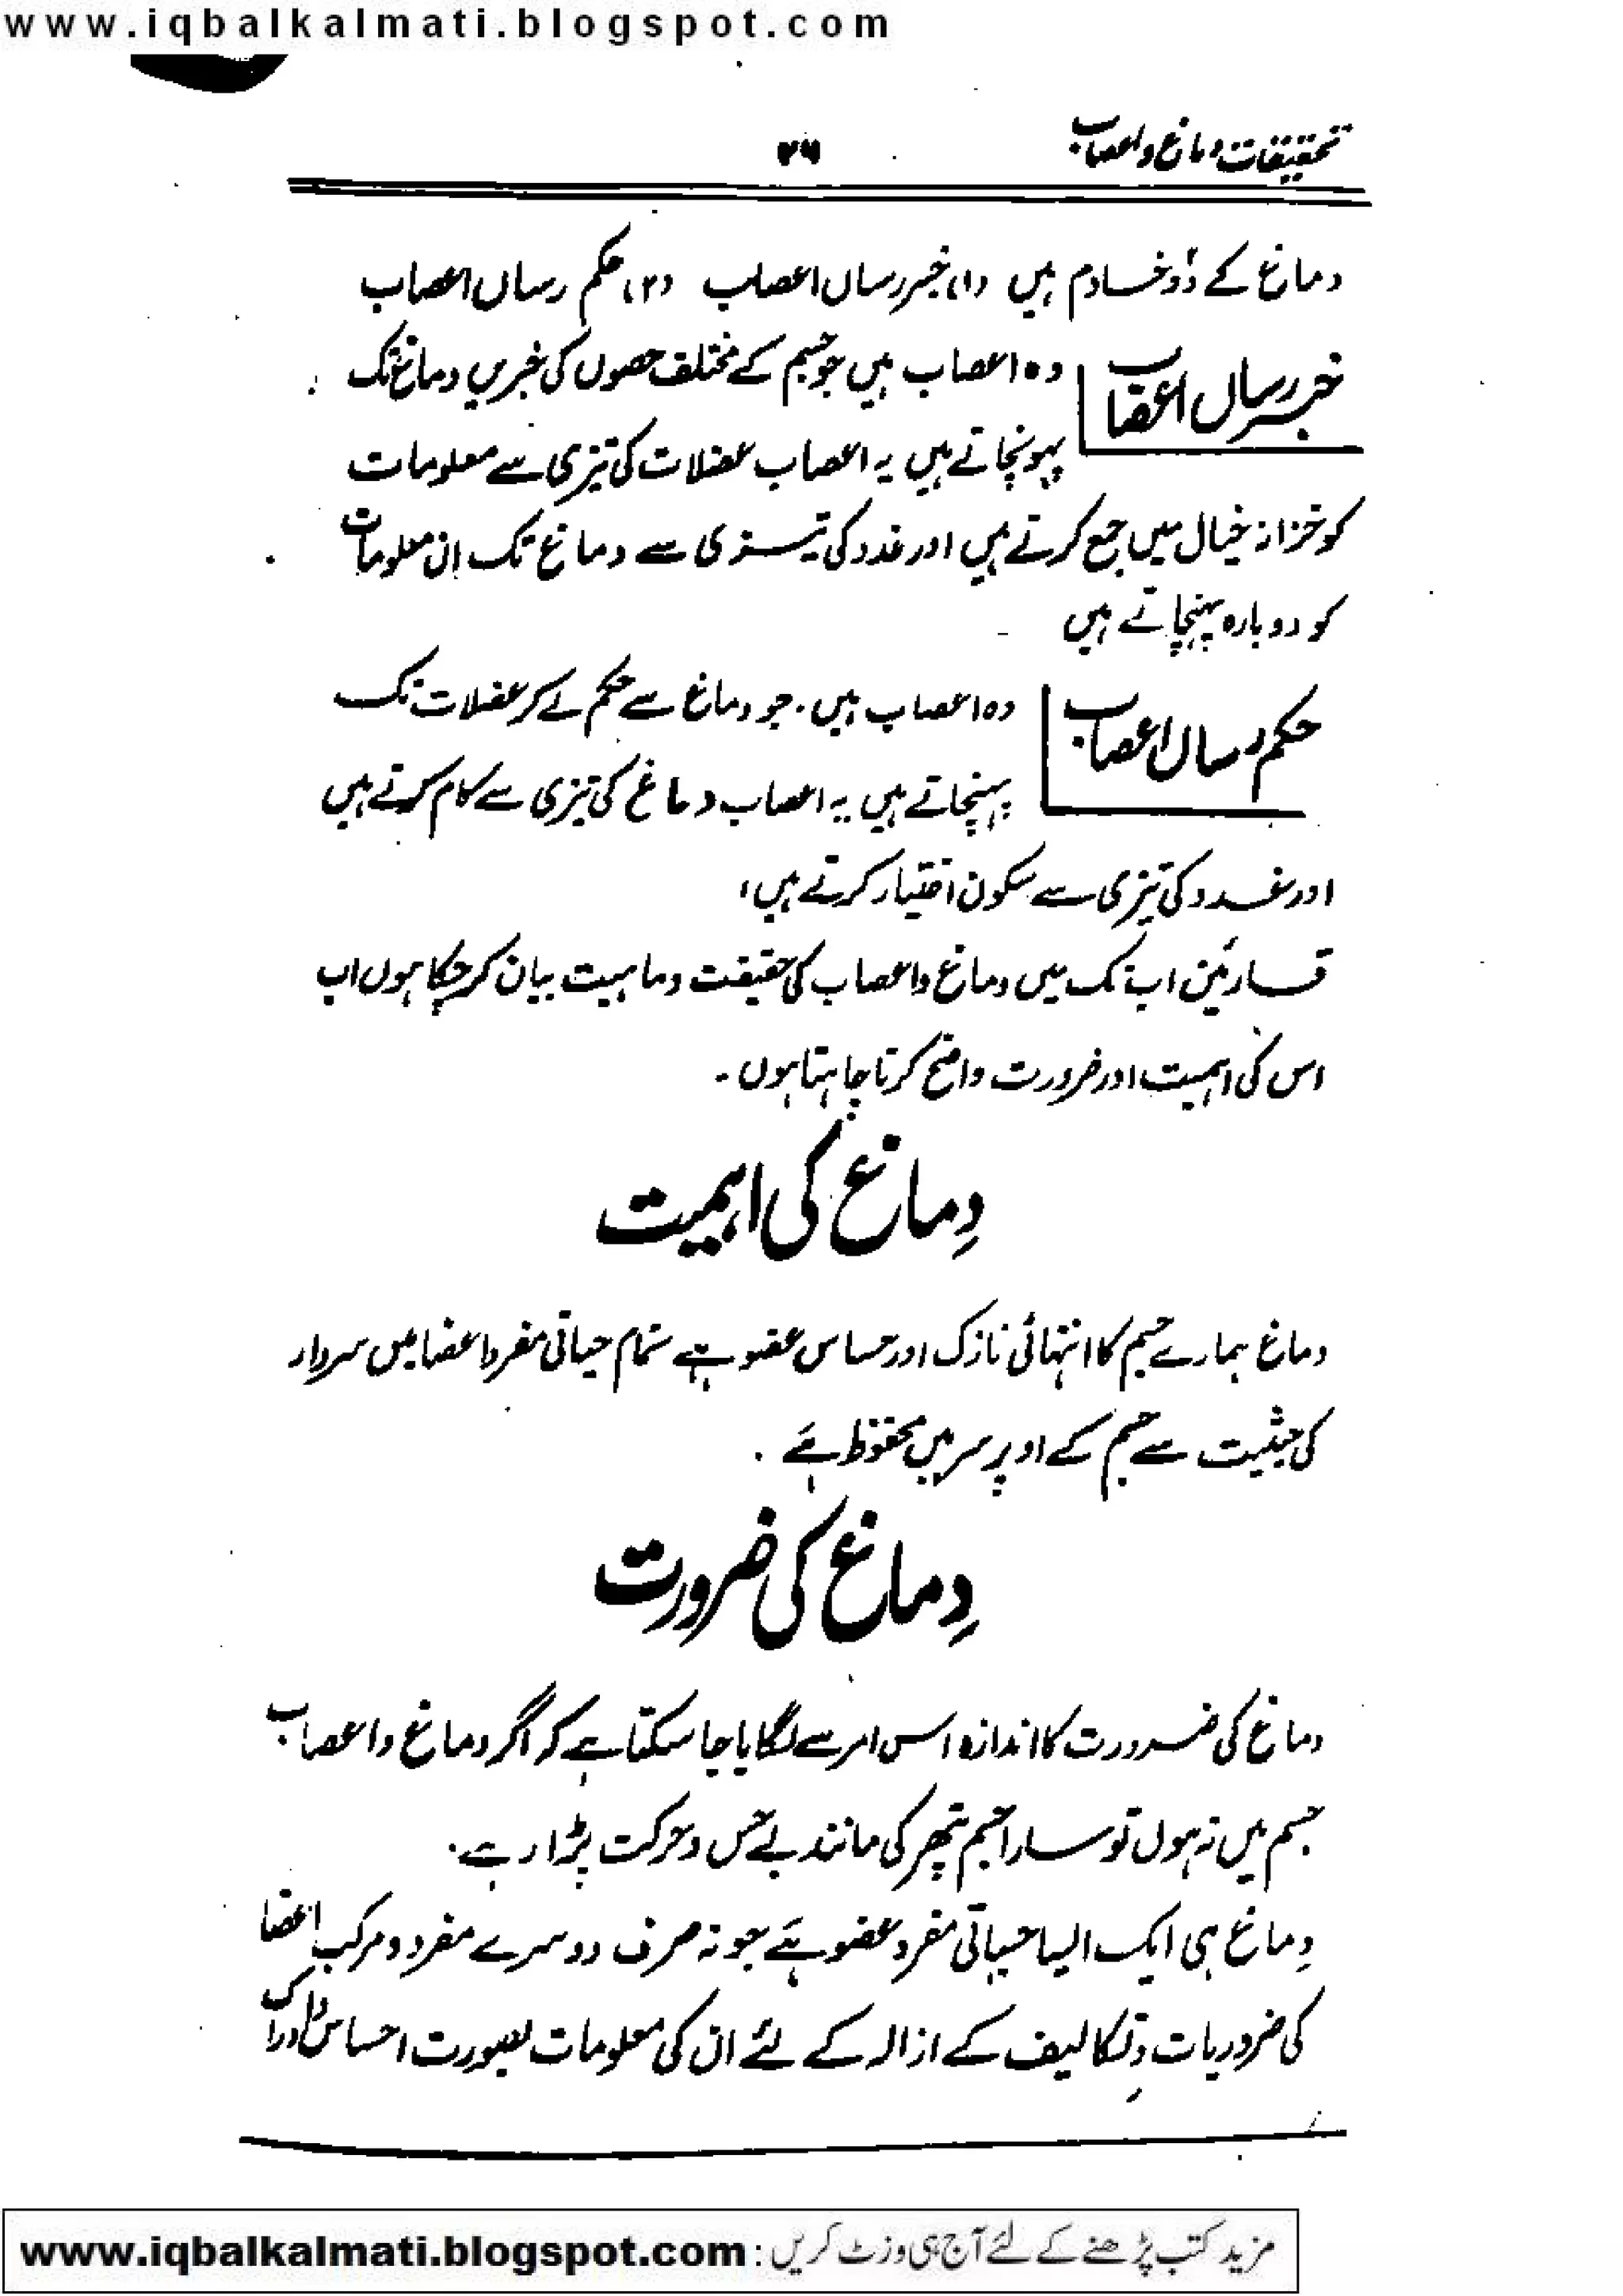 www.iqbalkalmati.blogspot.com
تحقیقات دماغ و اعصاب
۲۶
دماغ کے دو خادم ہیں (۱) خبر رساں اعصاب (۲) حکم رساں اعصاب
خبر رساں اعصاب
وہ اعصاب ہیں جو جسم کے مختلف حصوں کی خبریں دماغ تک
پہونچاتے ہیں یہ اعصاب عضلات کی تیزی سے معلومات
کو خزانہ خیال میں جمع کرتے ہیں اور غدد کی تیزی سے دماغ تک ان معلومات
کو دوبارہ پہنچاتے ہیں -
حکم رساں اعصاب
وہ اعصاب ہیں. جو دماغ سے حکم لے کر عضلات تک
پہنچاتے ہیں یہ اعصاب دماغ کی تیزی سے کام کرتے ہیں
اور غدد کی تیزی سے سکون اختیار کرتے ہیں،
قارئین اب تک میں دماغ و اعصاب کی حقیقت و ماہیت بیان کر چکا ہوں اب
اس کی اہمیت اور ضرورت واضح کرنا چاہتا ہوں -
دِماغ کی اہمیت
دماغ ہمارے جسم کا انتہائی نازک اور حساس عضو ہے تمام حیاتی مفرد اعضا میں سردار
کی حیثیت سے جسم کے اوپر سر میں محفوظ ہے .
دِماغ کی ضرورت
دماغ کی ضرورت کا اندازہ اس امر سے لگایا جا سکتا ہے کہ اگر دماغ و اعصاب
جسم میں نہ ہوں تو سارا جسم پتھر کی مانند بے حس و حرکت پڑا رہے.
دِماغ ہی ایک ایسا حیاتی مفرد عضو ہے جو نہ صرف دوسرے مفرد و مرکب اعضا
کی ضروریات و تکالیف کے ازالہ کے لئے ان کی معلومات بصورت احساس و ادراک
مزید کتب پڑھنے کے لئے آج ہی وزٹ کریں : www.iqbalkalmati.blogspot.com